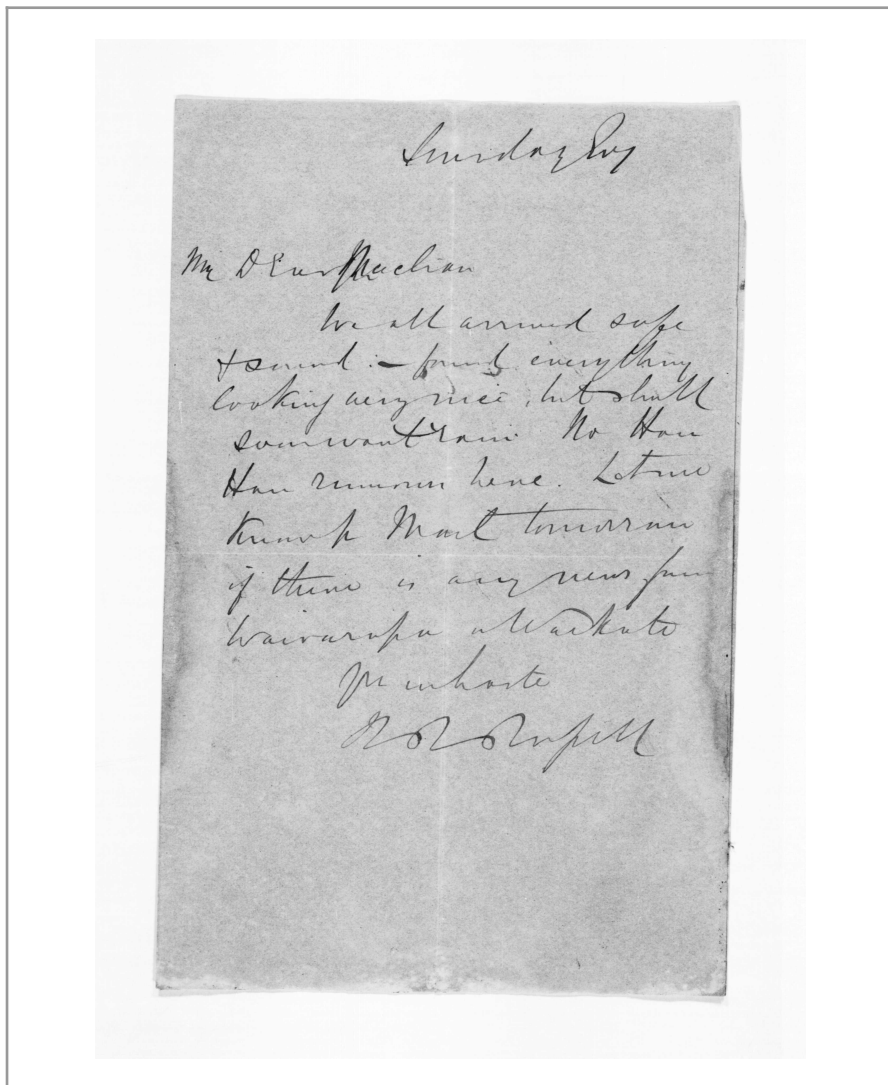 Sunday Evg
My Dear Maclean
We all arrived safe
& sound :- found everything
looking very nice, but shall
soon want rain. No Hau
Hau rumours here. Let me
know p Mail tomorrow
if there is any news from
Wairarapa or Waikato
Yrs in haste
H R Russell